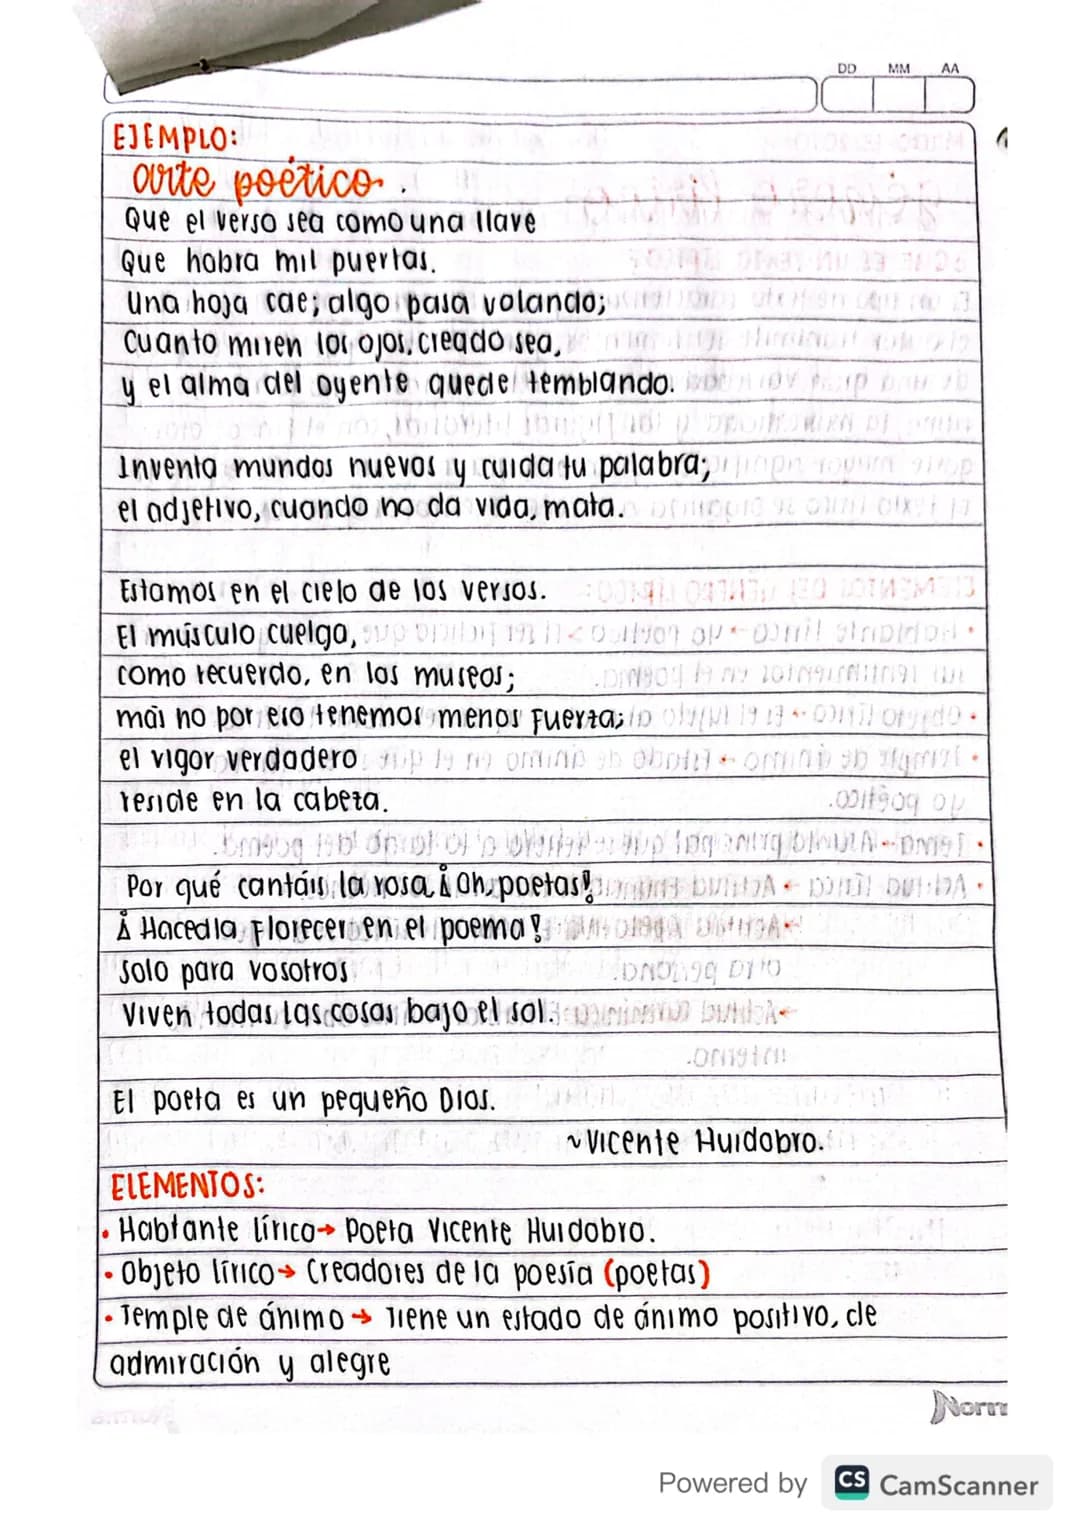 DD MM AA
EJEMPLO:
arte poético.
Que el verso sea como una llave
Que habra mil puertas.
Una hoja cae; algo pasa volando;
Cuanto miren los ojos, creado sea,
y el alma del oyente quede temblando.
Inventa mundos nuevos y cuida tu palabra;
el adjetivo, cuando no da vida, mata.
Estamos en el cielo de los versos.
El músculo cuelga,
como recuerdo, en los museos;
mas no por eso tenemos menos fuerza;
el vigor verdadero
reside en la cabeza.
Por qué cantáis la rosa ¡oh, poetas!
¡Hacedla florecer en el poema!
Solo para vosotros
Viven todas las cosas bajo el sol.
El poeta es un pequeño Dios.
~Vicente Huidobro.
ELEMENTOS:
• Hablante lírico→ Poeta Vicente Huidobro.
• Objeto lírico→ Creadores de la poesía (poetas)
• Temple de ánimo→ Tiene un estado de ánimo positivo, de
admiración y alegre
Norm
Powered by CS CamScanner